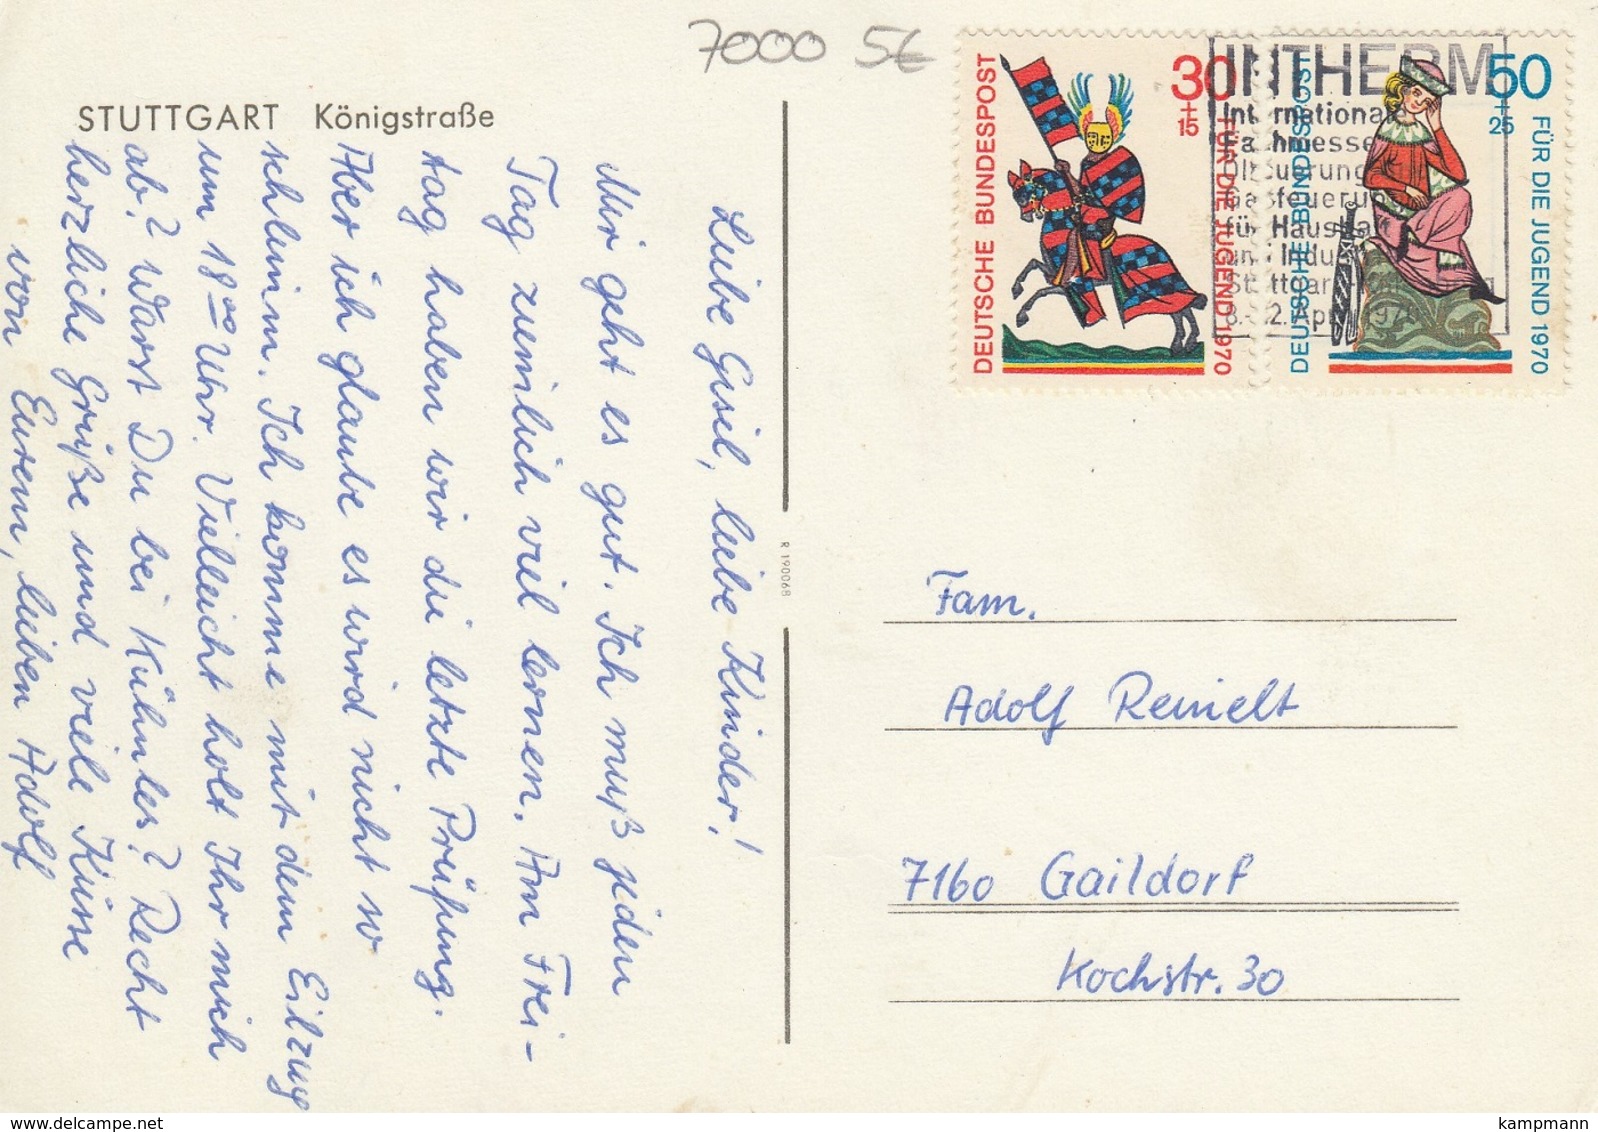 7000 5€
STUTTGART Königstraße
Liebe Gisel, liebe Kinder!
Mir geht es gut. Ich muß jeden
Tag ziemlich viel lernen. Am Frei-
tag haben wir die letzte Prüfung.
Aber ich glaube es wird nicht so
schlimm. Ich komme mit dem Eilzug
um 18⁰⁰ Uhr. Vielleicht holt Ihr mich
ab? Warst Du bei Kühnles? Recht
herzliche Grüße und viele Küsse
von Eurem, lieben Adolf
R 190068
DEUTSCHE BUNDESPOST
30
+
15
FÜR DIE JUGEND 1970
DEUTSCHE BUNDESPOST
50
+
25
FÜR DIE JUGEND 1970
INTHERM
Internationale
Fachmesse
Ölfeuerung
Gasfeuerung
für Haushalt
und Industrie
Stuttgart-Killesberg
Fam.
Adolf Reinelt
7160 Gaildorf
Kochstr. 30
kampmann